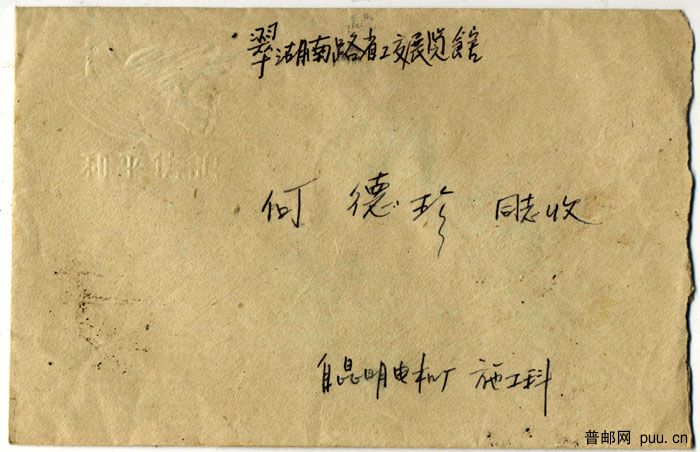 翠湖南路省工交展览館
和平信記
何德珍 同志收
自昆明电机厂 施工科
普邮网 puu.cn